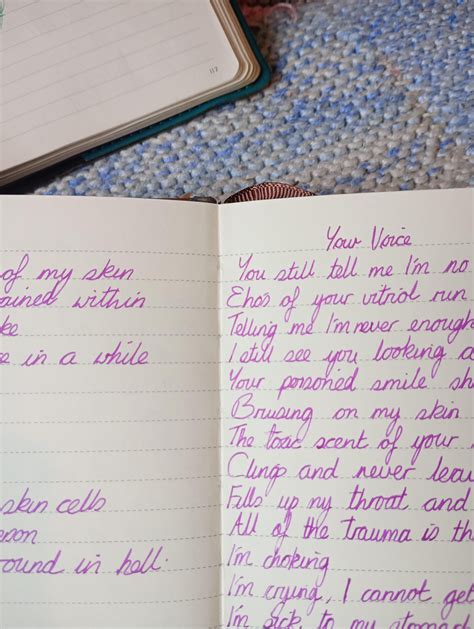 117
of my skin
ained within
ke
e in a while
skin cells
erson
round in hell.
Your Voice
You still tell me I'm no
Ehos of your vitriol run
Telling me I'm never enough
I still see you looking a
Your poisoned smile sh
Bruising on my skin
The toxic scent of your
Clings and never leav
Fills up my throat and
All of the trauma is th
I'm choking
I'm crying, I cannot get
I'm sick to my stomach